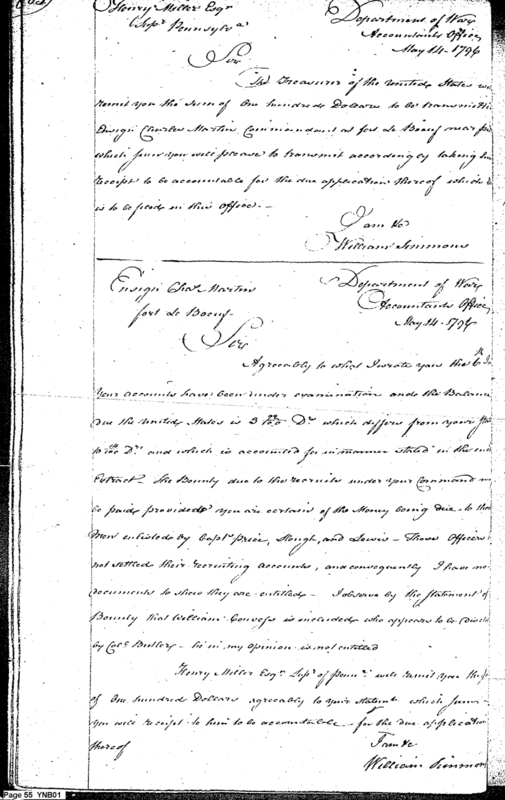 Henry Miller Esqr
Supr Pennsylva
Department of War
Accountants Office
May 14. 1796
Sir
The Treasurer of the United States
remit you the Sum of One hundred Dollars to be
Ensign Charles Martin Commandant at fort Le Boeuf near
which sum you will please to transmit accordingly taking
receipt to be accountable for the due application thereof which
is to be filed in this Office. –
I am &c
William Simmons
Ensign Chas Martin
fort Le Boeuf
Department of War
Accountants Office
May 14. 1796
Sir
Agreeably to what I wrote you the 6th
Your accounts have been under examination and the Balance
due the United States is 3 Dr which differs from your
Dr and which is accounted for in manner stated in the
Extract – The Bounty due to the recruits under your Command
be paid provided you are certain of the Money being due to
Men enlisted by Capts Price, Slough, and Lewis – Those Officers
not settled their recruiting accounts, and consequently I have no
documents to show they are entitled – I observe by the Statement of
Bounty that William is included who appears to be
by Colo Butler – he in my opinion is not entitled
Henry Miller Esqr Supr of Pennsa will remit you the
of One hundred Dollars agreeably to your Statemt which
you will receipt to him to be accountable for the due application
thereof
I am &c
William Simmons
Page 55 YNB01